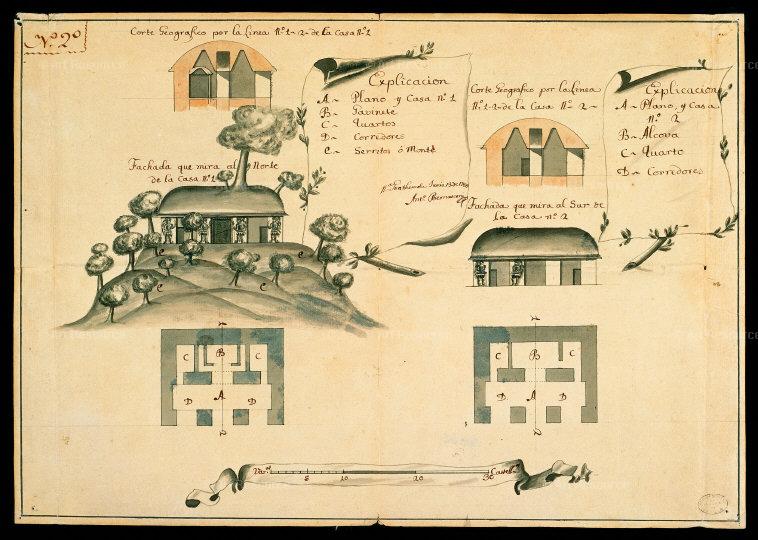 Nº 2º
Corte Geografico por la linea Nº 1-2- de la Casa Nº 1
Explicacion
A~ Plano y Casa nº 1
B~ Gavinete
C~ Quartos
D~ Corredores
E~ Serritos ó Monte
Fachada que mira al Norte
de la Casa nº 1
Antº Bernasconi
Corte Geografico por la linea
Nº 1-2- de la Casa Nº 2~
Explicacion
A~ Plano, y Casa
nº 2
B~ Alcova
C~ Quarto
D~ Corredores
Fachada que mira al Sur de
la Casa nº 2
e
e
e
e
C
B
C
D
A
D
C
B
C
D
A
D
Varˢ
5
10
20
30
Castellˢ